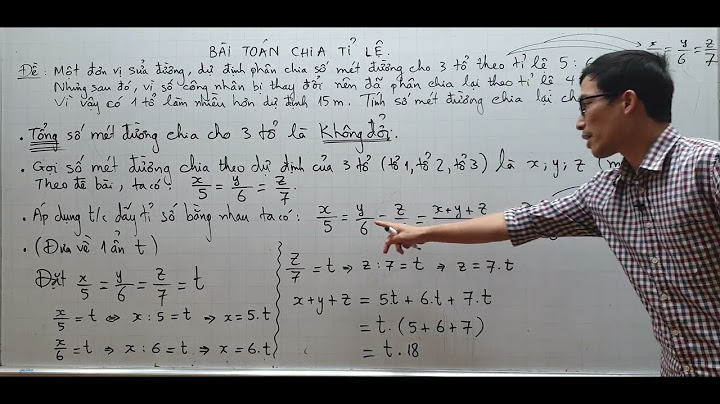 BÀI TOÁN CHIA TỈ LỆ.
Đề: Một đơn vị sửa đường, dự định phân chia số mét đường cho 3 tổ theo tỉ lệ 5:
x/ y/6 = z/7
Nhưng sau đó, vì số công nhân bị thay đổi nên đã phân chia lại theo tỉ lệ 4
Vì vậy có 1 tổ làm nhiều hơn dự định 15m. Tính số mét đường chia lại
• Tổng số mét đường chia cho 3 tổ là Không đổi.
• Gọi số mét đường chia theo dự định của 3 tổ (tổ 1, tổ 2, tổ 3) là x; y; z (m
Theo đề bài, ta có: x/5 = y/6 = z/7.
• Áp dụng t/c dãy tỉ số bằng nhau ta có: x/5 = y/6 = z/ = x+y+z
• (Đưa về 1 ẩn t)
Đặt x/5 = y/6 = z/7 = t
x/5 = t ⇔ x : 5 = t ⇒ x = 5.t
x/6 = t ⇒ x : 6 = t ⇒ x = 6.t
z/7 = t ⇒ z : 7 = t ⇒ z = 7.t
x+y+z = 5t + 6.t + 7.t
= t.(5+6+7)
= t.18